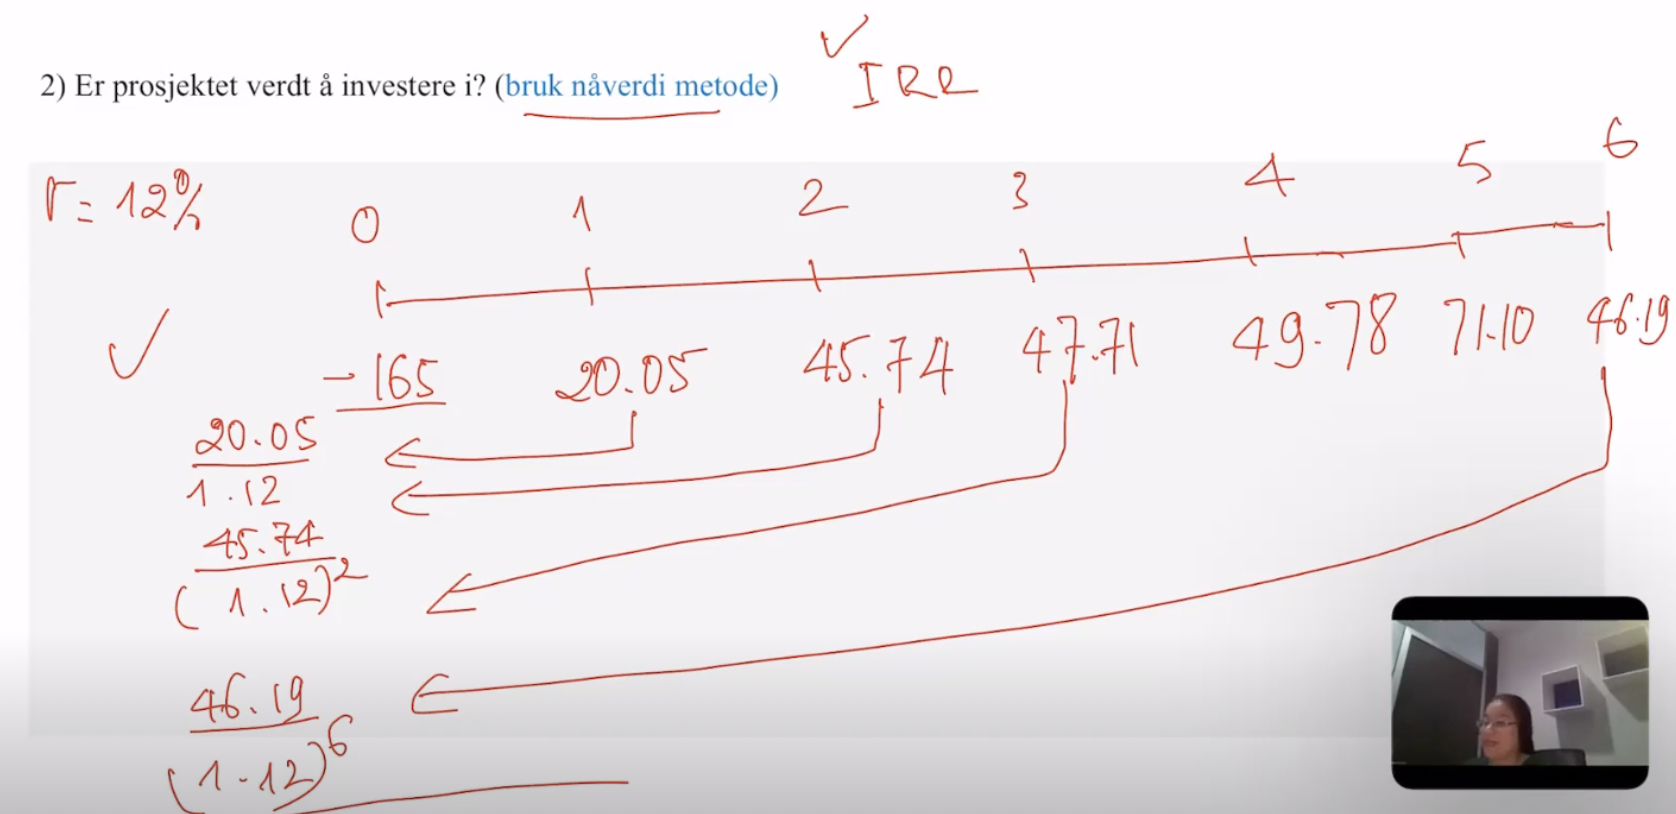 2) Er prosjektet verdt å investere i? (bruk nåverdi metode)
IRR
r = 12%
0 1 2 3 4 5 6
-165 20.05 45.74 47.71 49.78 71.10 46.19
20.05
1.12
45.74
(1.12)2
46.19
(1.12)6